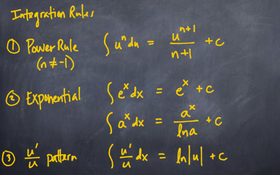 Integration Rules
① Power Rule ∫ uⁿ du = uⁿ⁺¹/(n+1) + c
(n ≠ -1)
② Exponential ∫ eˣ dx = eˣ + c
∫ aˣ dx = aˣ/ln a + c
③ u'/u pattern ∫ u'/u dx = ln|u| + c